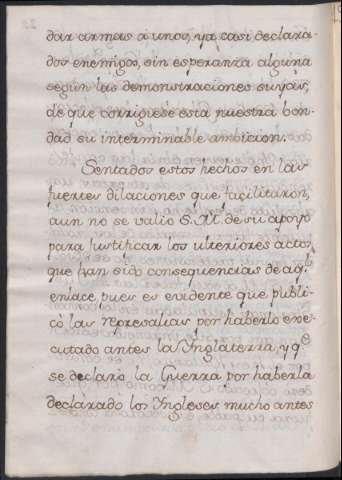 dar armas a unos, ya casi declara-
dos enemigos, sin esperanza alguna
segun las demonstraciones suyas,
de que corrigiese esta nuestra bon-
dad su interminable ambicion.
Sentados estos hechos en las
fuertes dilaciones que facilitaron,
aun no se valio S. M. de su apoyo
para justificar los ulteriores actos
que han sido consequencias de aql.
enlace pues es evidente que publi-
có las represalias por haberlo exe-
cutado antes la Ynglaterra, y qe.
se declaró la Guerra por haberla
declarado los Yngleses mucho antes